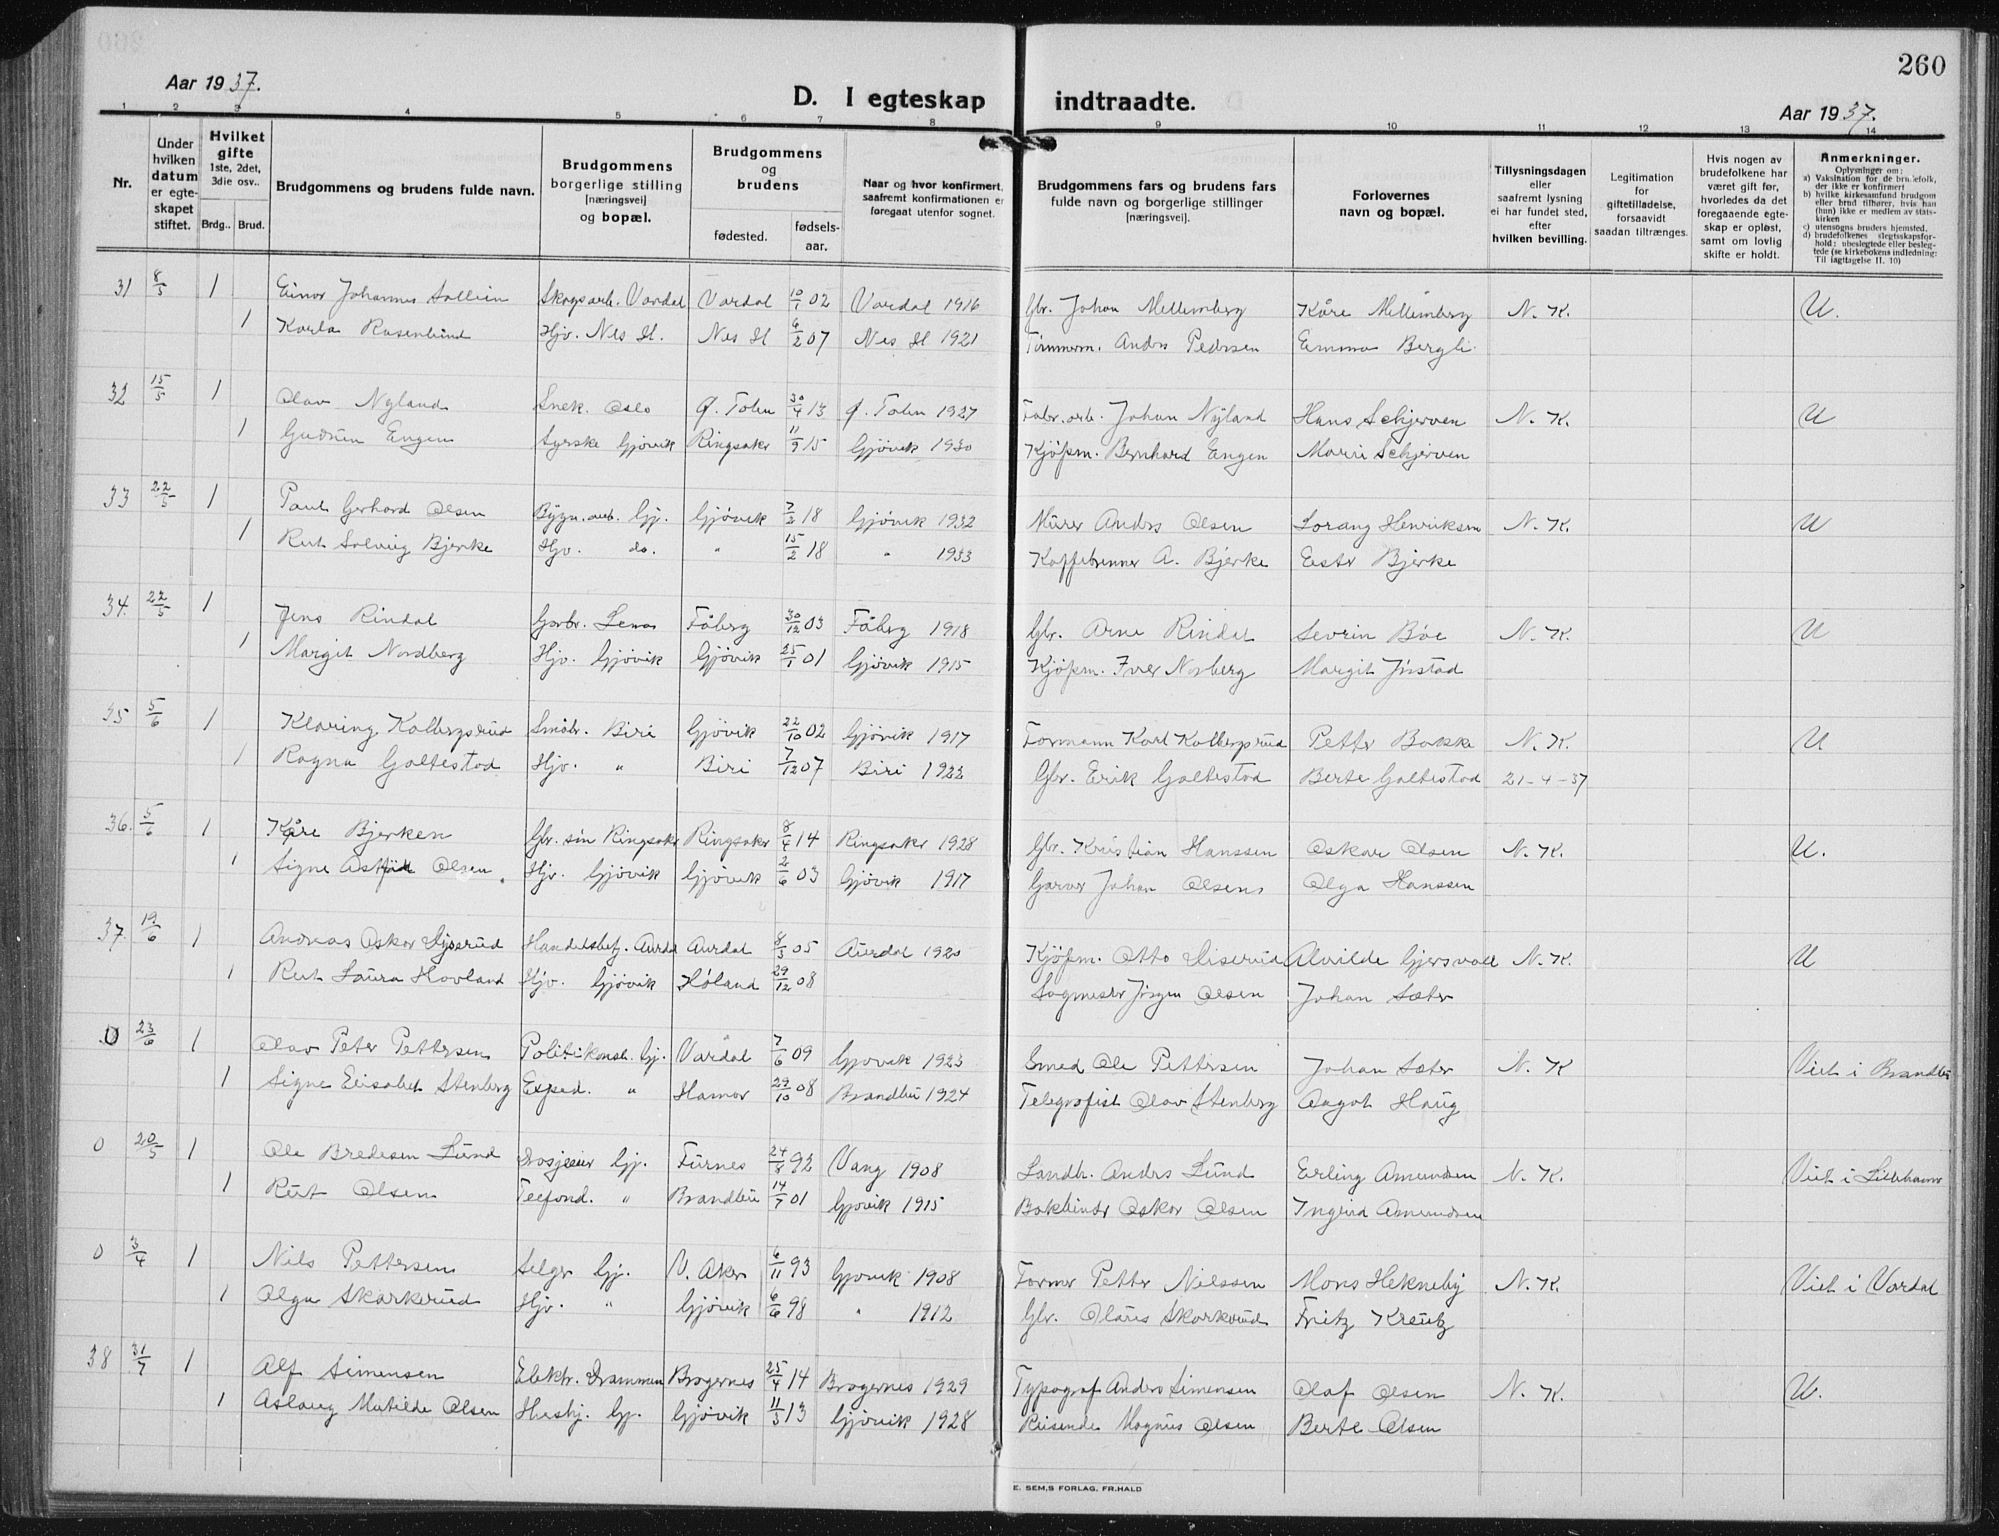 260
Aar 1937.
D. I egteskap indtraadte.
Aar 1937.
1 2 3 4 5 6 7 8 9 10 11 12 13 14
Nr.
Under hvilken datum er egteskapet stiftet.
Hvilket gifte 1ste, 2det, 3die osv..
Brdg.. Brud.
Brudgommens og brudens fulde navn.
Brudgommens borgerlige stilling [næringsvei] og bopæl.
Brudgommens og brudens
fødested. fødselsaar.
Naar og hvor konfirmert, saafremt konfirmationen er foregaat utenfor sognet.
Brudgommens fars og brudens fars fulde navn og borgerlige stillinger [næringsvei].
Forlovernes navn og bopæl.
Tillysningsdagen eller saafremt lysning ei har fundet sted, efter hvilken bevilling.
Legitimation for giftetilladelse, forsaavidt saadan tiltrænges.
Hvis nogen av brudefolkene har været gift før, hvorledes da det foregaaende egteskap er opløst, samt om lovlig skifte er holdt.
Anmerkninger.
Oplysninger om:
a) Vaksination for de brudefolk, der ikke er konfirmert
b) hvilke kirkesamfund brudgom eller brud tilhører, hvis han (hun) ikke er medlem av statskirken
c) utensogns bruders hjemsted.
d) brudefolkenes slegtsskapsforhold: ubeslegtede eller beslegtede (se kirkebokens indledning: Til iagttagelse II. 10)
31 8/5 1 Einar Johannes Skogsarb. Vardal Vardal 10/1 02 Vardal 1916 Gbr. Johan Mellemberg Kåre Mellemberg N. K. U.
1 Karla Rosenlund Hjv. Nes H. Nes H 6/2 07 Nes H 1921 Tømmerm. Anders Pedersen Emma Bergli
32 15/5 1 Olav Nyland Snek. Oslo Ø. Toten 30/4 13 Ø. Toten 1927 Fabr. arb. Johan Nyland Hans Schjerven N. K. U
1 Gudrun Engen Syerske Gjøvik Ringsaker 11/9 15 Gjøvik 1930 Kjøpm. Bernhard Engen Marie Schjerven
33 22/5 1 Paul Gerhard Olsen Bygn. arb. Gj. Gjøvik 7/2 18 Gjøvik 1932 Murer Anders Olsen Lorang Henriksen N. K. U
1 Rut Solveig Bjerke Hjv. do. " 15/2 18 " 1933 Kaffebrenner A. Bjerke Ester Bjerke
34. 22/5 1 Jens Rindal Gbr. Lena Fåberg 30/12 03 Fåberg 1918 Gbr. Arne Rindal Sevrin Bøe N. K. U
1 Margit Nordberg Hjv. Gjøvik Gjøvik 25/1 01 Gjøvik 1915 Kjøpm. Iver Norberg Margit
35 5/6 1 Klaring Kolbergsrud Småbr. Biri Gjøvik 22/10 02 Gjøvik 1917 Formann Karl Kolbergsrud Petter Bakke N. K. U
1 Ragna Galtestad Hjv. " Biri 7/12 07 Biri 1922 Gbr. Erik Galtestad Berte Galtestad 21-4-37
36. 5/6 1 Kåre Bjerken Gbr. søn Ringsaker Ringsaker 8/4 14 Ringsaker 1928 Gbr. Kristian Hanssen Oskar Olsen N. K. U.
1 Signe Olsen. Hjv. Gjøvik Gjøvik 2/6 03 Gjøvik 1917 Garver Johan Olsen Olga Hanssen
37. 19/6 1 Andreas Oskar Handelsbetj. Aurdal Aurdal 8/3 05 Aurdal 1920 Kjøpm. Otto Alvilde Gjersvold N. K. U
1 Rut Laura Hovland Hjv. Gjøvik Høland 29/12 08 Sagmester Jørgen Olsen Johan Sæter
0 23/6 1 Olav Peter Pettersen Politikonst. Gj. Vardal 7/6 09 Gjøvik 1923 Smed Ole Pettersen Johan Sæter N. K Viet i Brandbu
1 Signe Elisabet Stenberg Exped. " Hamar 29/10 08 Brandbu 1924 Telegrafist Olav Stenberg Aagot Haug
0 20/5 1 Ole Bredesen Lund Drosjeeier Gj. Furnes 24/8 92 Vang 1908 Landh. Anders Lund Erling Amundsen N. K. Viet i Lillehamr
1 Rut Olsen Telefond. " Brandbu 14/7 01 Gjøvik 1915 Bokbinder Oskar Olsen Ingrid Amundsen
0 3/4 1 Nils Pettersen Selger Gj. V. Aker 6/11 93 Gjøvik 1908 Former Petter Nielssen Mons Hekneby N. K. Viet i Vardal
1 Olga Skarkerud Hjv. " Gjøvik 6/6 98 " 1912 Gbr. Olaus Skarkerud Fritz Kreutz
38 31/7 1 Alf Simensen Elektr. Drammen Bragernes 25/4 14 Bragernes 1929 Typograf Anders Simensen Olaf Olsen N. K. U.
1 Aslaug Matilde Olsen Hushj. Gj. Gjøvik 11/3 13 Gjøvik 1928 Reisende Magnus Olsen Berte Olsen
E. SEM,S FORLAG, FR.HALD